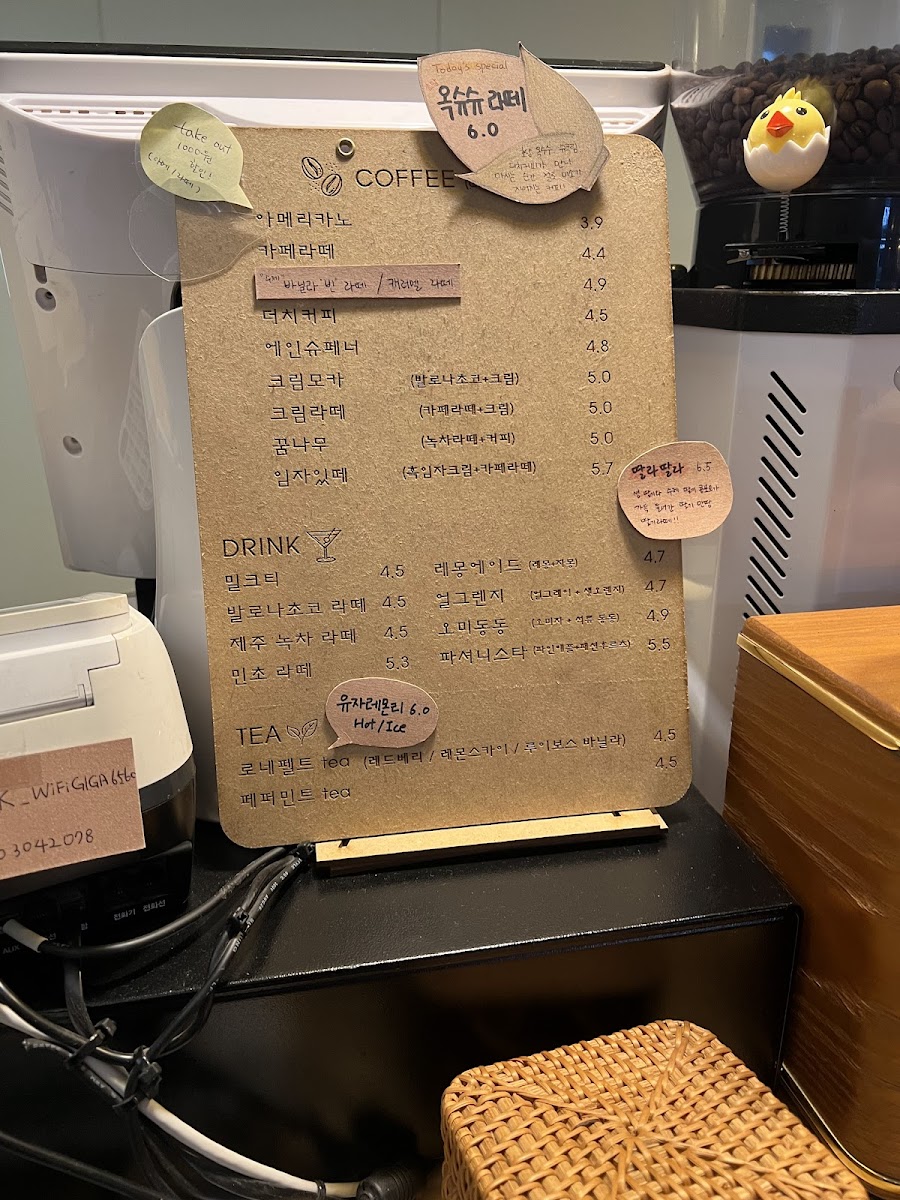 take out
1000원
할인!
(아메/라떼)
Today's special
옥슈슈 라떼
6.0
COFFEE
아메리카노 3.9
카페라떼 4.4
"수제" 바닐라'빈' 라떼 / 캐러멜 라떼 4.9
더치커피 4.5
에인슈페너 4.8
크림모카 (발로나초코+크림) 5.0
크림라떼 (카페라떼+크림) 5.0
꿈나무 (녹차라떼+커피) 5.0
임자있떼 (흑임자크림+카페라떼) 5.7
딸라딸라 6.5
딸기라떼!!
DRINK
밀크티 4.5
발로나초코 라떼 4.5
제주 녹차 라떼 4.5
민초 라떼 5.3
레몽에이드 (레몬+자몽) 4.7
얼그렌지 (얼그레이+생오렌지) 4.7
오미동동 (오미자+석류 동동) 4.9
파셔니스타 5.5
유자레몬티 6.0
Hot/Ice
TEA
로네펠트 tea (레드베리 / 레몬스카이 / 루이보스 바닐라) 4.5
페퍼민트 tea 4.5
K_WiFiGIGA656
3042078
AUX
전화기 전화선